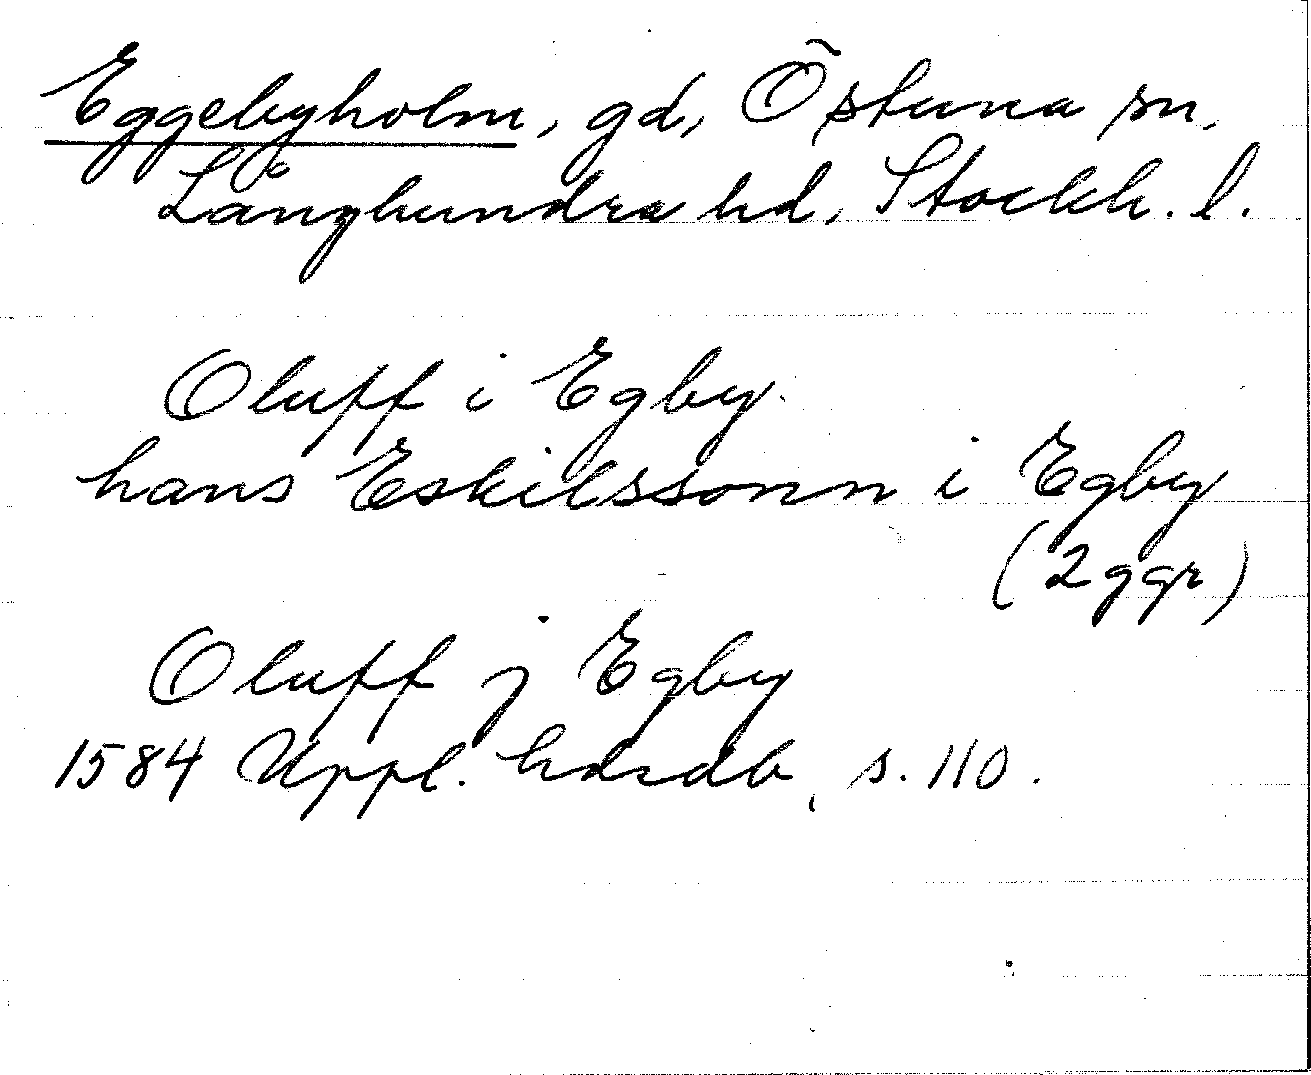 Eggebyholm, gd, Östuna sn,
Långhundra hd, Stockh. l.
Oluff i Egby
hans Eskilssonn i Egby
(2 ggr)
Oluff j Egby
1584 Uppl. hdrdb, s. 110.